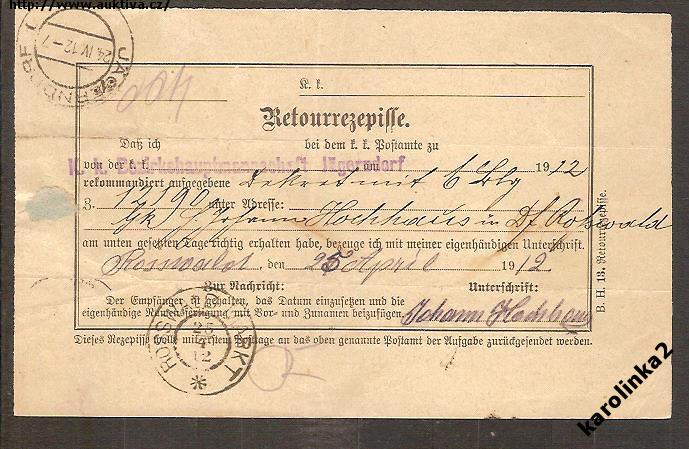 http://www.auktiva.cz/
JÄGERNDORF
24 IV 12-7
K. k.
Retourrezepisse.
Daß ich bei dem k. k. Postamte zu
K. k. Bezirkshauptmannschaft Jägerndorf
von der k. k. am 1912
rekommandiert aufgegebene Dekret mit 6 Blg
3. 12190 unter Adresse: Johann Hochhaus in Df. Roswald
am unten gesetzten Tage richtig erhalten habe, bezeuge ich mit meiner eigenhändigen Unterschrift.
Rosswald, den 25 April 1912
Zur Nachricht: Unterschrift:
Der Empfänger ist gehalten, das Datum einzusetzen und die
eigenhändige Namensfertigung mit Vor- und Zunamen beizufügen. Johann Hochhaus
Dieses Rezepisse soll mit erstem Postage an das oben genannte Postamt der Aufgabe zurückgesendet werden.
ROSSWALD MARKT
25 4 12
B. H. 13. Retourrezepisse.
karolinka2